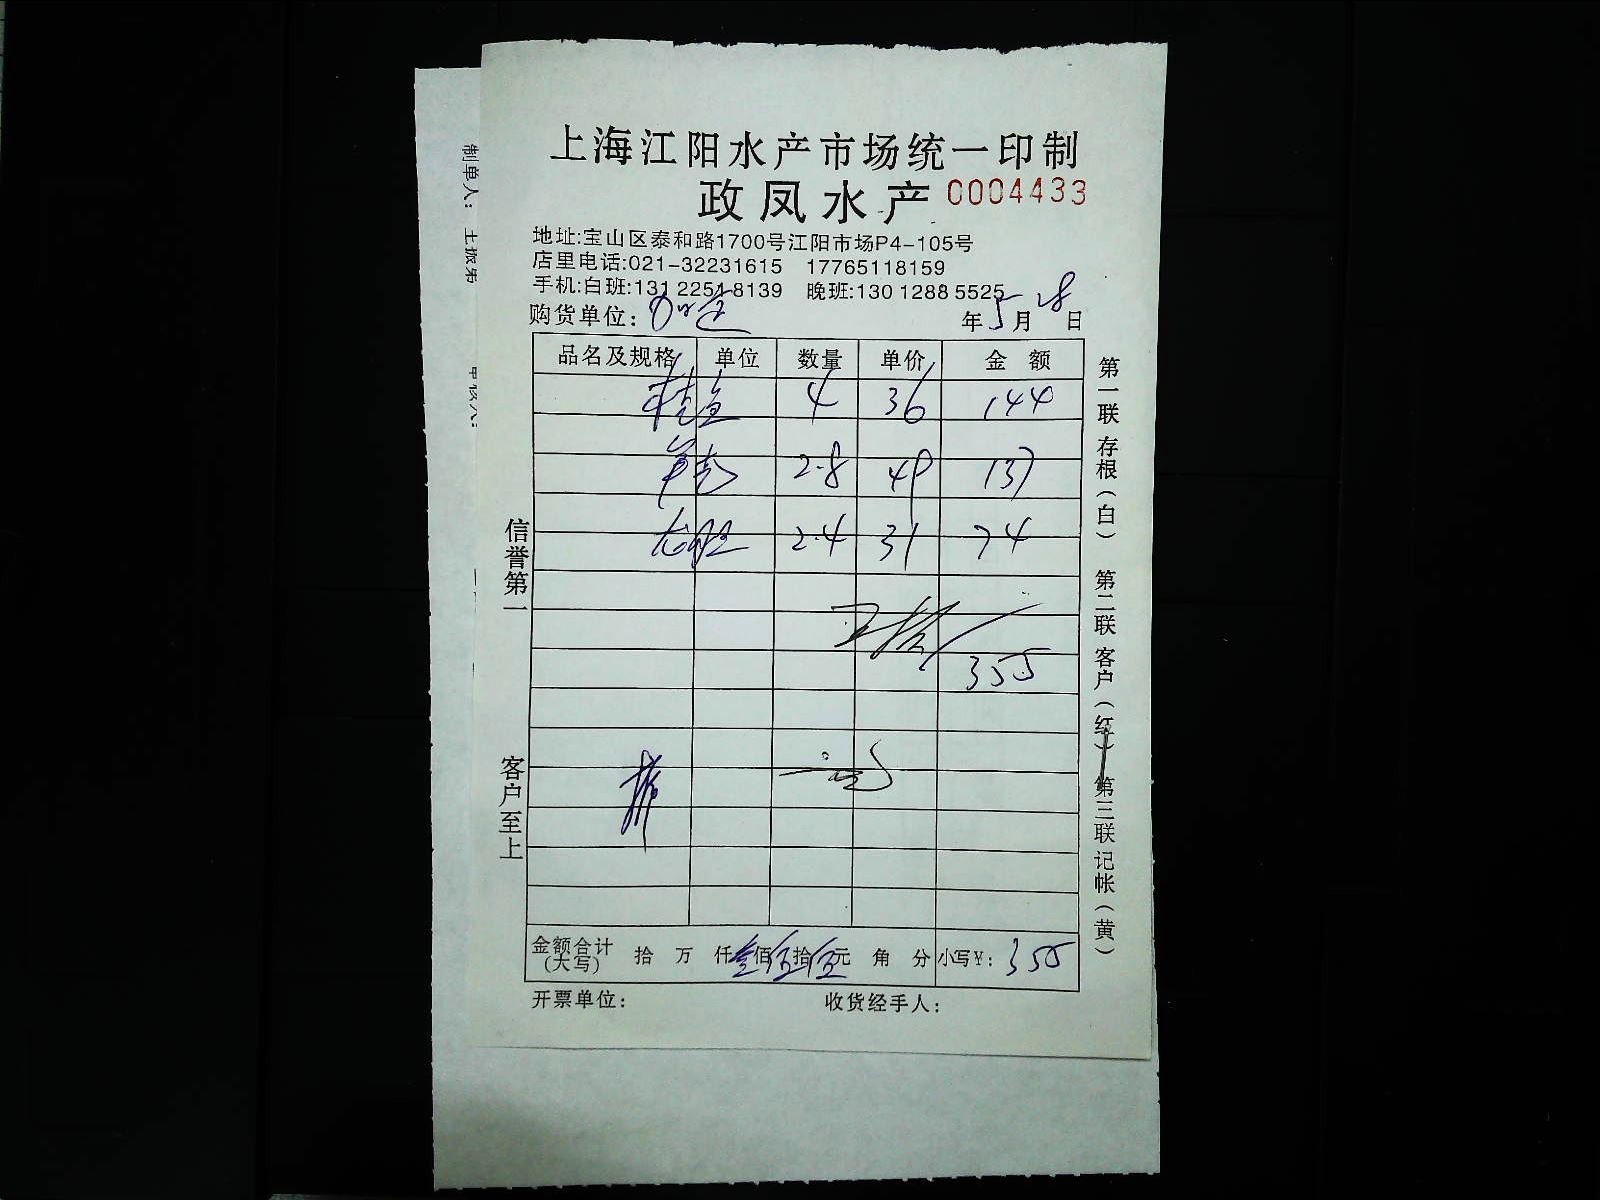 上海江阳水产市场统一印制
政凤水产 0004433
地址:宝山区泰和路1700号江阳市场P4-105号
店里电话:021-32231615 17765118159
手机:白班:131 2251 8139 晚班:130 1288 5525
购货单位: 年 5 月 28 日
品名及规格 单位 数量 单价 金 额
桂鱼 4 36 144
2.8 49 137
2.4 31 74
355
金额合计(大写) 拾 万 仟 叁 佰 伍 拾 伍 元 角 分 小写¥: 355
开票单位: 收货经手人:
信誉第一 客户至上
第一联 存根(白) 第二联 客户(红) 第三联 记帐(黄)
制单人: